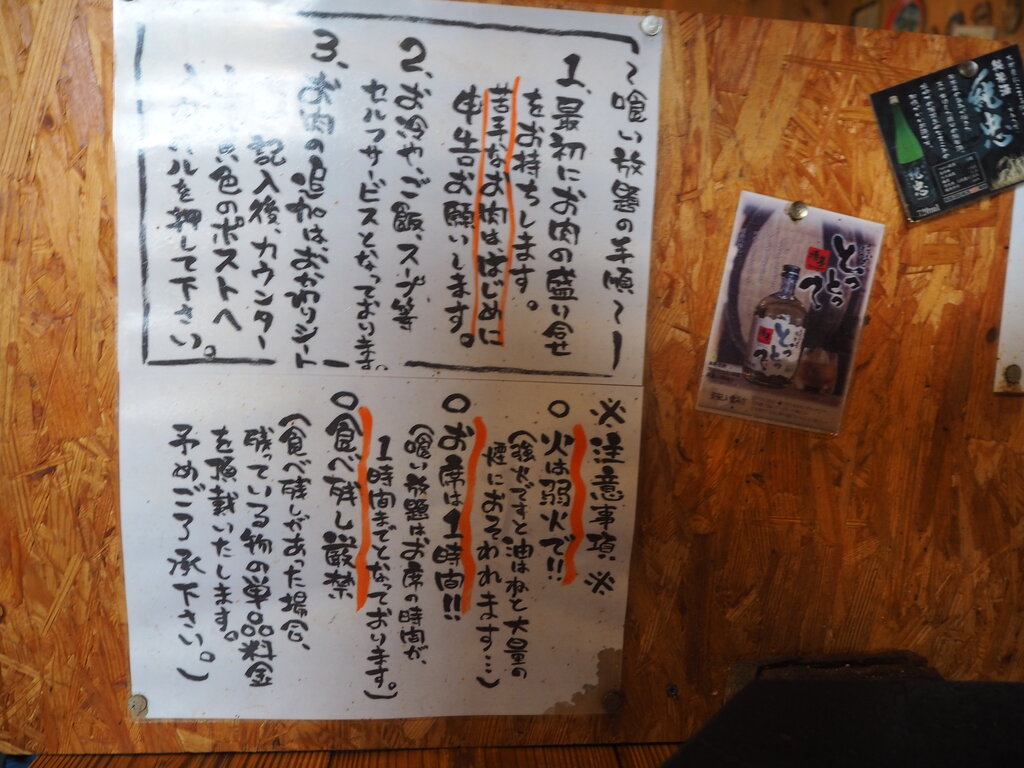 ~喰い放題の手順~
1.最初にお肉の盛り合せ
をお持ちします。
苦手なお肉ははじめに
申告お願いします。
2.お冷やご飯、スープ等
セルフサービスとなっております。
3.お肉の追加はおかわりシート
記入後、カウンター
色のポストへ
ルを押して下さい。
※注意事項※
○火は弱火で!!
(強火ですと油はねと大量の
煙におそわれます…)
○お席は1時間!!
(喰い放題はお席の時間が、
1時間までとなっております。)
○食べ残し厳禁
(食べ残しがあった場合、
残っている物の単品料金
を頂戴いたします。
予めご了承下さい。)
とっとって
とっとって
720ml